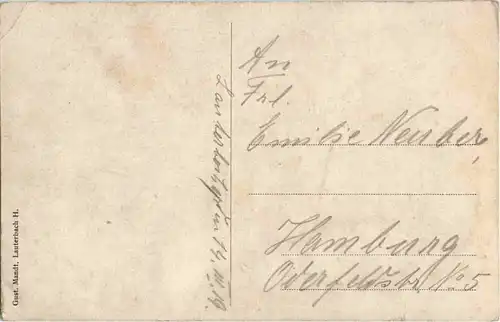 Gust. Mandt, Lauterbach H.
Lauterbach, den 14. IV. 19.
An
Frl.
Emilie Neuber,
Hamburg
Oderfeldstr. No 5